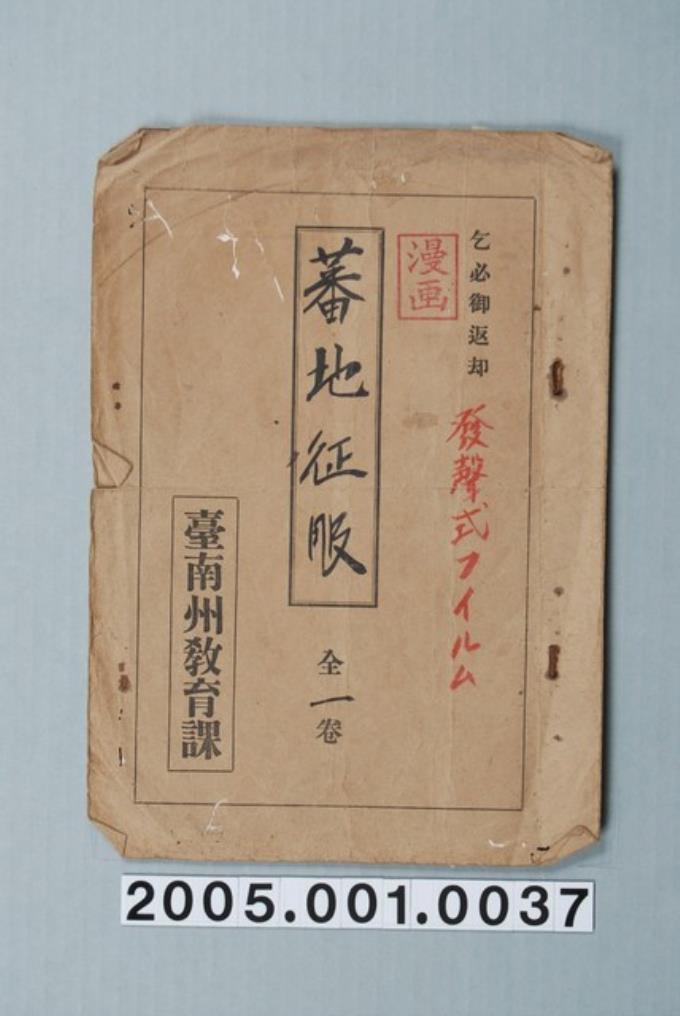 乞必御返却
發聲式フイルム
漫画
蕃地征服
全一卷
臺南州教育課
2005.001.0037